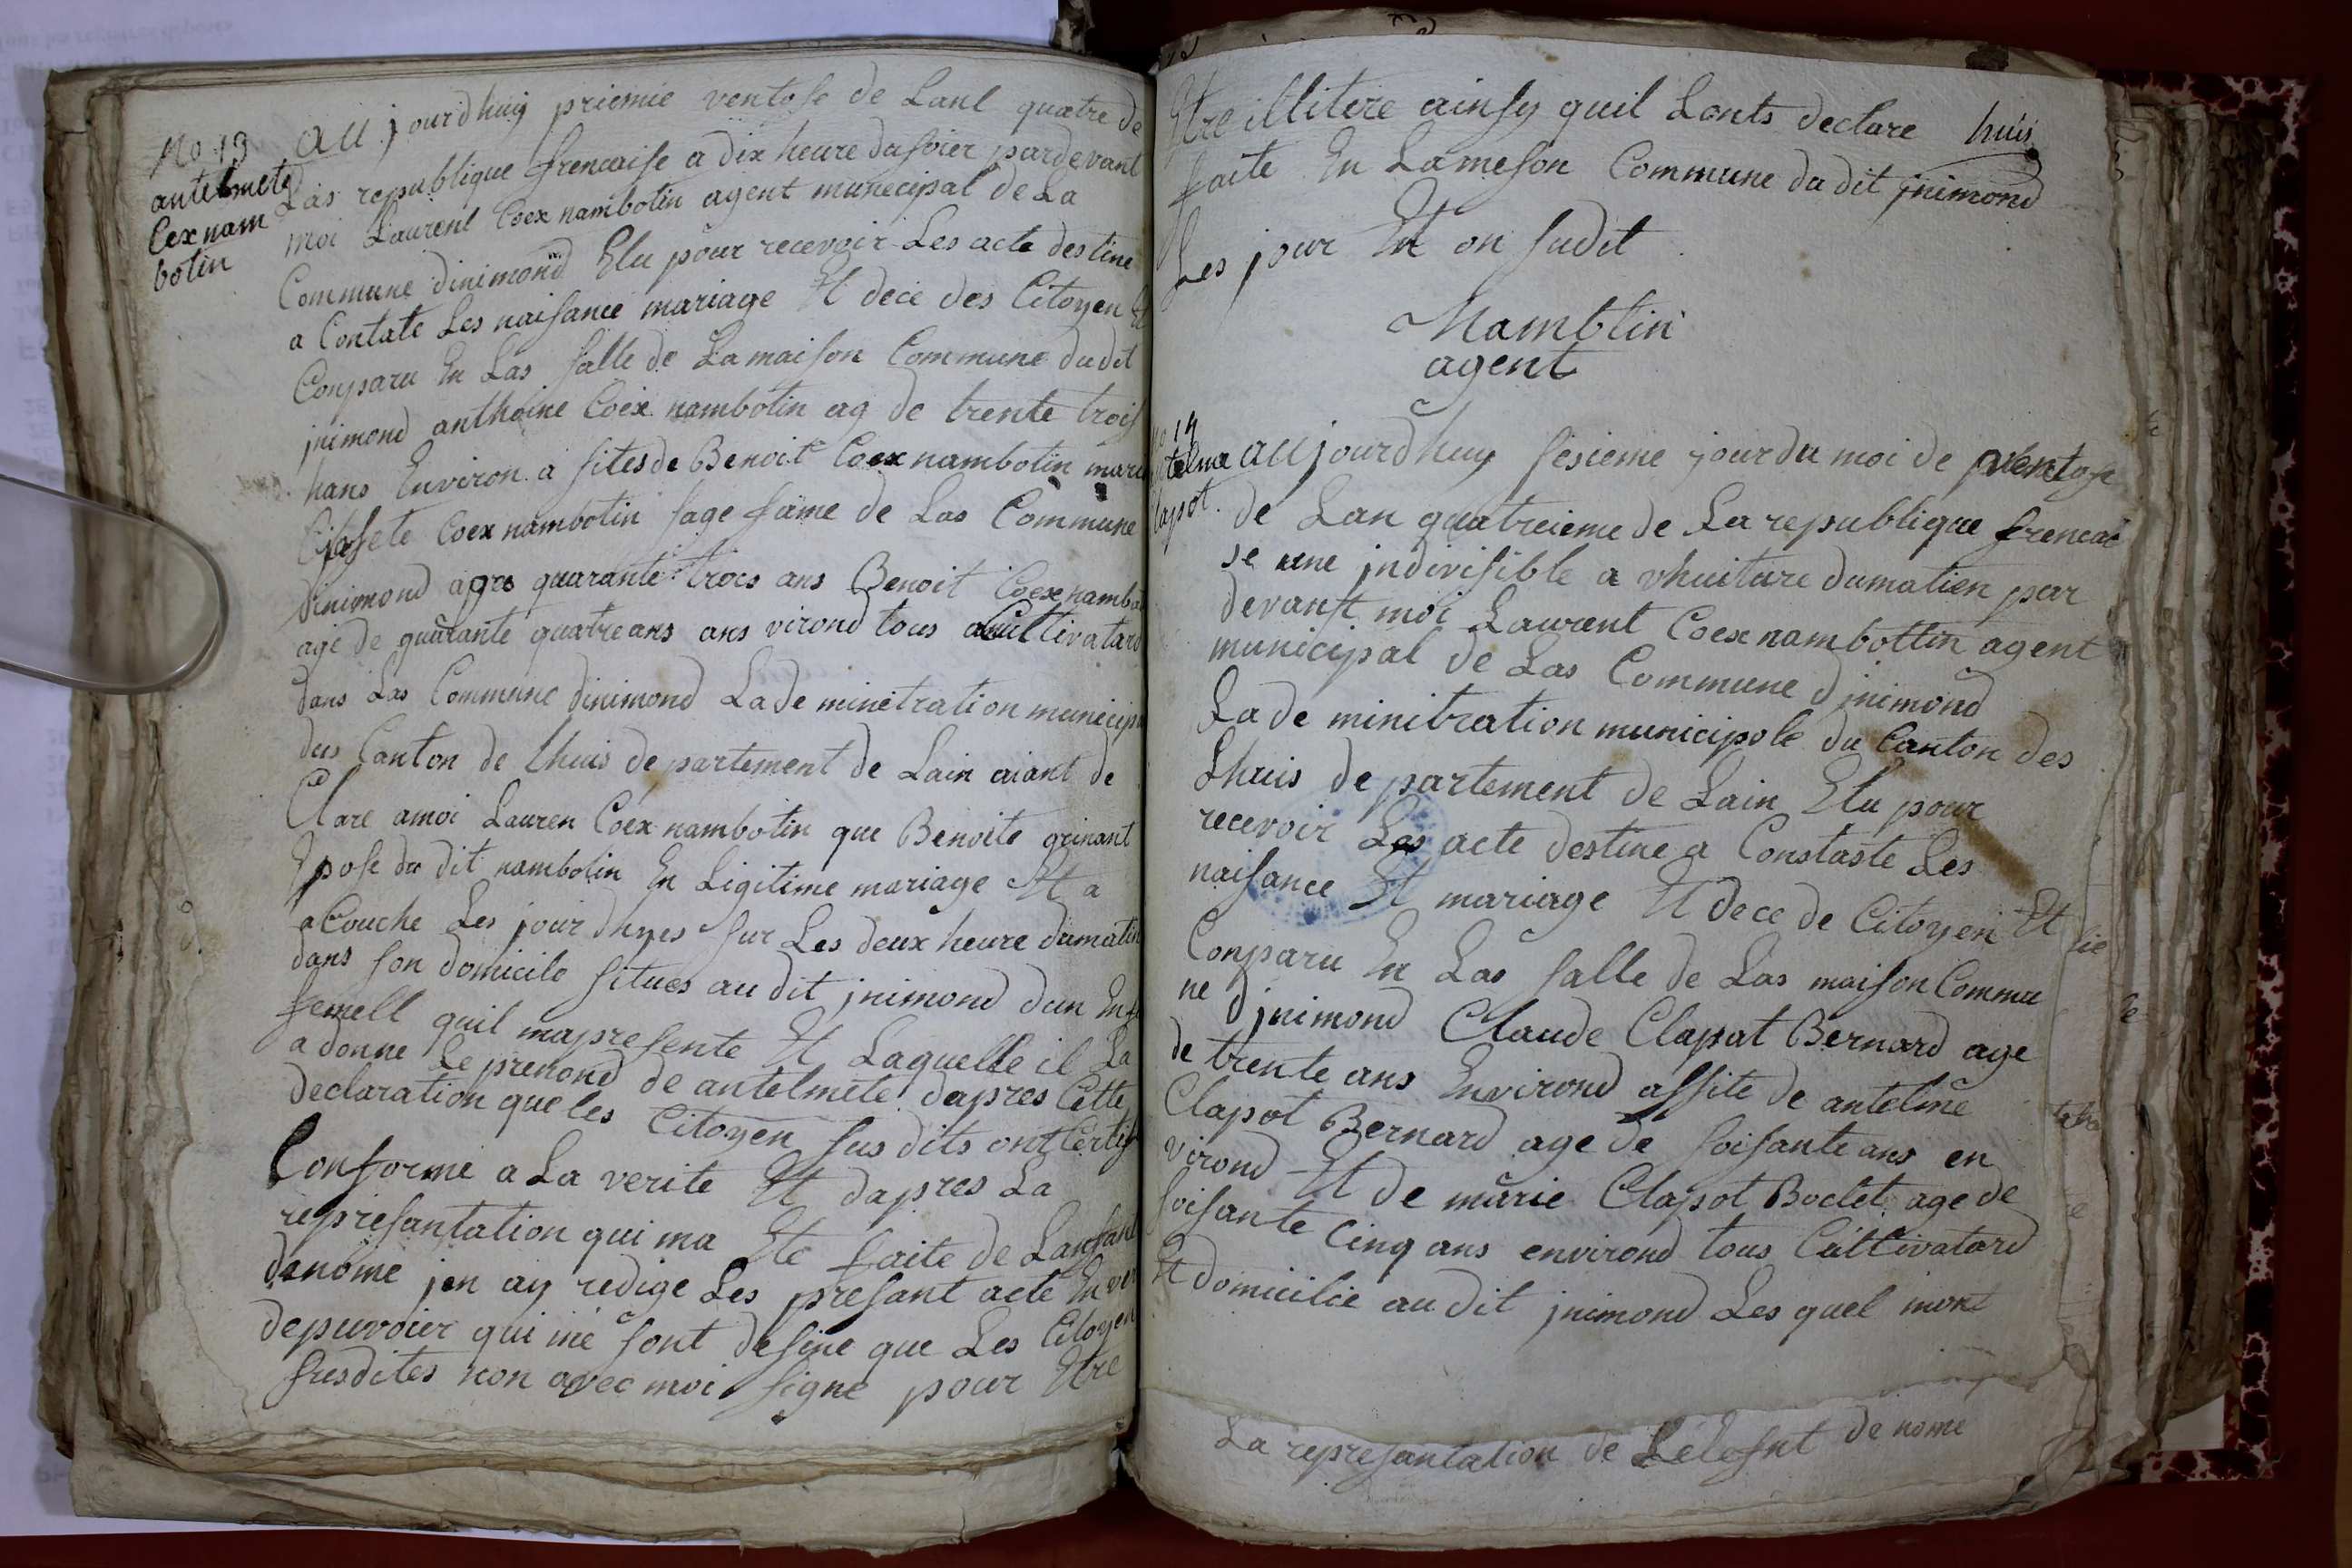 No 13
antelmete
Coex nam
botin
Au jourdhuiy priemie ventose de Lanl quatre de
Las republique frencaise a dix heure dusoier pardevant
moi Laurent Coex nambotin agent municipal de La
Commune dinimond Elu pour recevoir Les acte destine
a Contate Les naisance mariage Et dece des Citoyen Et
Conparu En Las salle de La maison Commune dudit
jnimond anthoine Coex nambotin ag de trente trois
hans Environ a sites de Benoit Coex nambotin
Coex nambotin sage fame de Las Commune
Dinimond agee quarante trois ans Benoit Coex nambo
age de quarante quatre ans ans virond tous Cultivatard
dans Las Commune dinimond La de minitration municipa
dus Canton de Lhuis de partement de Lain aiant de
Clare amoi Lauren Coex nambotin que Benoite grinant
Epose du dit nambotin En Ligitime mariage Et a
a Couche Les jour dhyes sur Les deux heure dumatin
dans son domicile situes au dit jnimond dun
femell quil mapresente Et Laquelle il La
a donne Le prenond de antelmete dapres Cette
declaration que les Citoyen sus dits ont Certif
Conforme a La verite Et dapres La
represantation qui ma Ete faite de Lanfant
denome jen ay redige Les presant acte En ver
depuvoier qui me sont desine que Les Citoyen
susdites non avec moi signe pour Etre
Etre illitere ainsy quil Lonts declare huis
faite En Lameson Commune du dit jnimond
Les jour Et on sudit
Namblin
agent
No 14
antelme
Clapot
Aujourdhuy sesieme jour du moi de ventose
de Lan quatreieme de La republique frencai
se une jndivisible a vhuiture dumatien par
devant moi Laurent Coex nambottin agent
municipal de Las Commune djnimond
La de minitration municipole du Canton des
Lhuis de partement de Lain Elu pour
recevoir Les acte destine a Constaste Les
naisance Et mariage Et dece de Citoyen Et
Conparu En Las salle de Las maison Commu
ne djnimond Claude Clapat Bernard age
de trente ans Environd assite de antelme
Clapot Bernard age de soisante ans en
virond Et de marie Clapot Boclet age de
soisante Cinq ans environd tous Cultivatard
Et domicilie au dit jnimond Les quel mont
La represantation de de nome